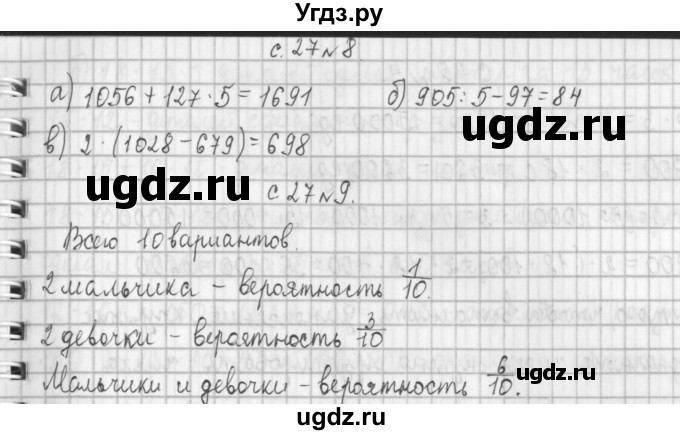 Угдз.ру
с. 27 № 8
а) 1056 + 127 · 5 = 1691 б) 905 : 5 - 97 = 84
ugdz.ru
в) 2 · (1028 - 679) = 698
ugdz.ru
с 27 № 9.
Всего 10 вариантов.
2 мальчика - вероятность 1/10.
2 девочки - вероятность 3/10
ugdz.ru
Мальчики и девочки - вероятность 6/10.
ugdz.ru
ugdz.ru